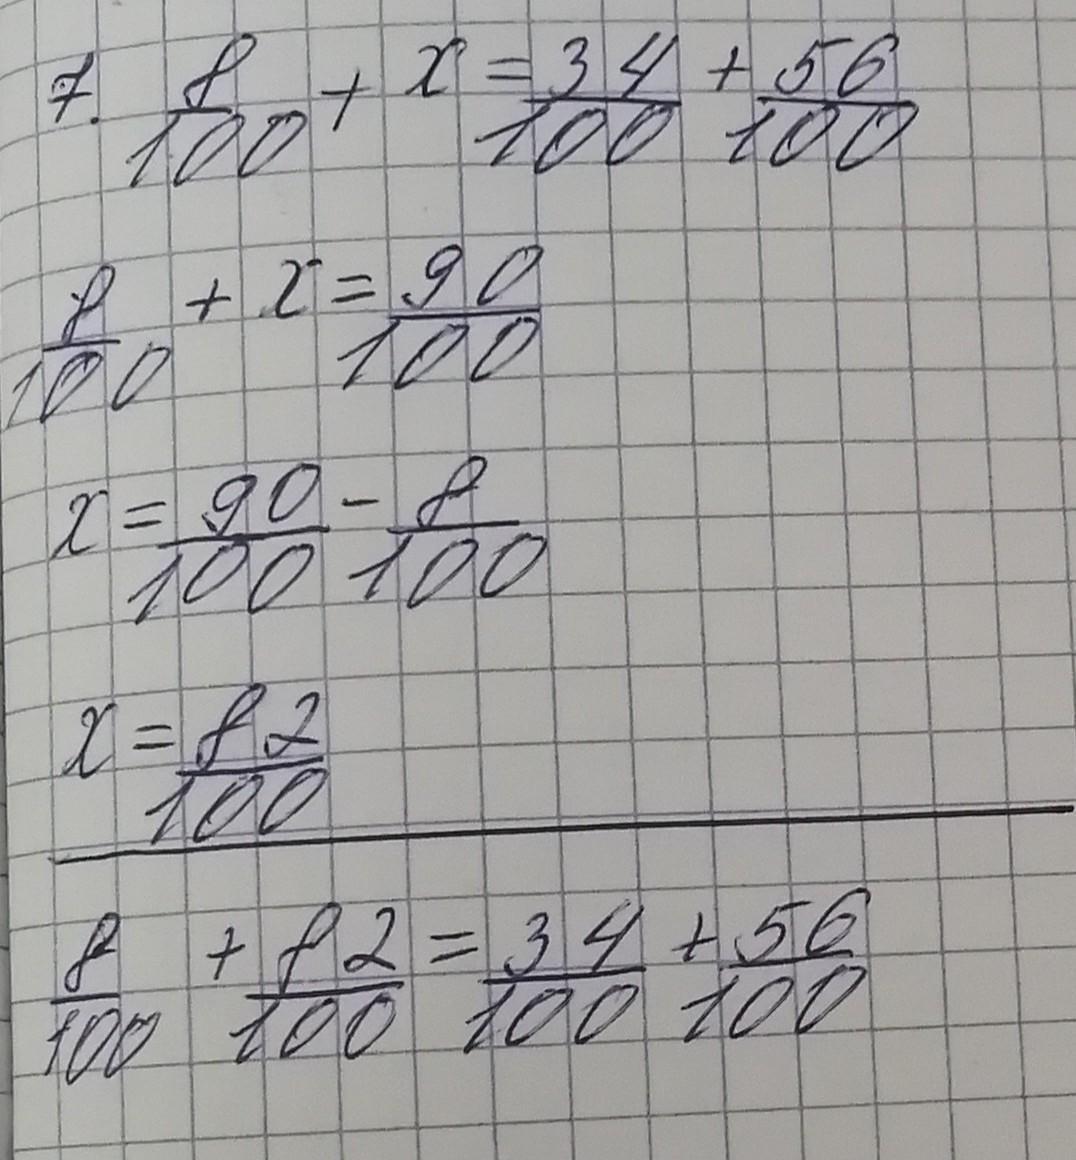 7. 8/100 + x = 34/100 + 56/100
8/100 + x = 90/100
x = 90/100 - 8/100
x = 82/100
8/100 + 82/100 = 34/100 + 56/100